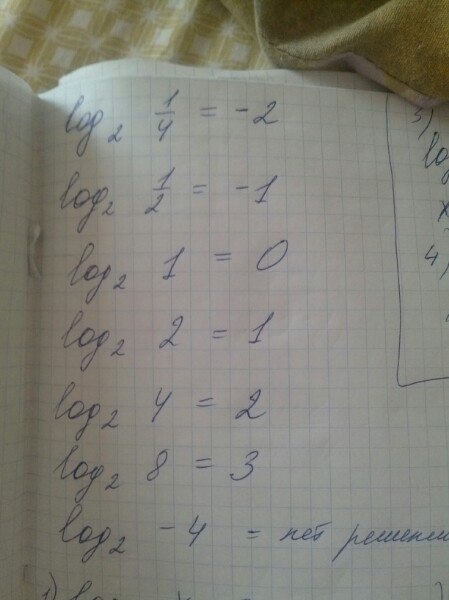 log₂ 1/4 = -2
log₂ 1/2 = -1
log₂ 1 = 0
log₂ 2 = 1
log₂ 4 = 2
log₂ 8 = 3
log₂ -4 = нет
1)
3)
log
x
4)